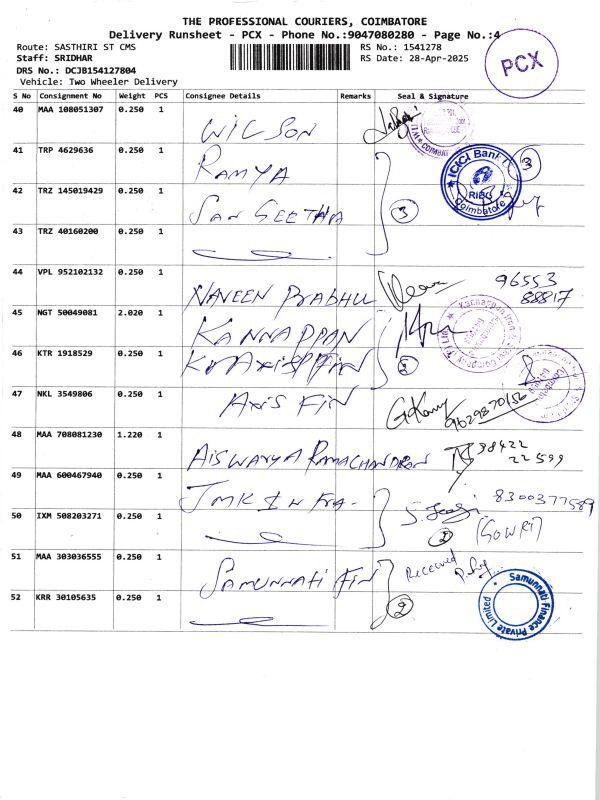 THE PROFESSIONAL COURIERS, COIMBATORE
Delivery Runsheet - PCX - Phone No.:9047080280 - Page No.:4
Route: SASTHIRI ST CMS
RS No.: 1541278
PCX
Staff: SRIDHAR
RS Date: 28-Apr-2025
DRS No.: DCJB154127804
Vehicle: Two Wheeler Delivery
S No Consignment No Weight PCS Consignee Details Remarks Seal & Signature
40 MAA 108051307 0.250 1 WILSON
COIMBAT
41 TRP 4629636 0.250 1 RAMYA
ICICI Bank
Coimbatore
3
42 TRZ 145019429 0.250 1 SANGEETHA
3
43 TRZ 40160200 0.250 1
44 VPL 952102132 0.250 1 NAVEEN PRABHU
96553
88817
45 NGT 50049081 2.020 1 KANNAPPAN
46 KTR 1918529 0.250 1
47 NKL 3549806 0.250 1 AXIS FIN
9629870156
48 MAA 708081230 1.220 1 AISWARYA RAMACHANDRAN
98422
22599
49 MAA 600467940 0.250 1 JMK INFRA-
8300377589
50 IXM 508203271 0.250 1
2
(GOWRI)
51 MAA 303036555 0.250 1 SAMUNNATI FIN
Received
52 KRR 30105635 0.250 1
2
Samunnati Finance Private Limited